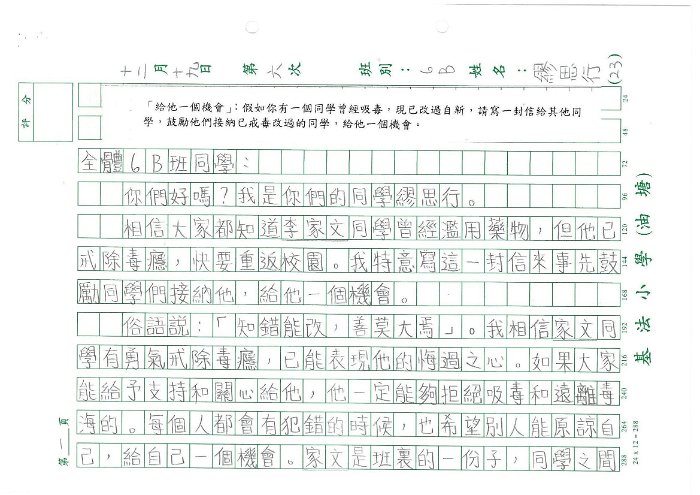 十二月十九日 第六次 班別：6B 姓名：繆思行(23)
評分
「給他一個機會」：假如你有一個同學曾經吸毒，現已改過自新，請寫一封信給其他同
學，鼓勵他們接納已戒毒改過的同學，給他一個機會。
24
48
全體6B班同學：
72
你們好嗎？我是你們的同學繆思行。
96
相信大家都知道李家文同學曾經濫用藥物，但他已
120
戒除毒癮，快要重返校園。我特意寫這一封信來事先鼓
144
勵同學們接納他，給他一個機會。
168
俗語說：「知錯能改，善莫大焉」。我相信家文同
192
學有勇氣戒除毒癮，已能表現他的悔過之心。如果大家
216
能給予支持和關心給他，他一定能夠拒絕吸毒和遠離毒
240
海的。每個人都會有犯錯的時候，也希望別人能原諒自
264
己，給自己一個機會。家文是班裏的一份子，同學之間
288
第一頁
基法小學(油塘)
24 x 12 = 288